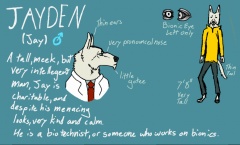 JAYDEN
(Jay) ♂
thin ears
very pronounced nose
little goatee
Bionic Eye
Left only
7'8"
Very Tall
Thin Tail
A tall, meek, but
very intelligent
man, Jay is
charitable, and
despite his menacing
looks, very kind and calm.
He is a bio technist, or someone who works on bionics.